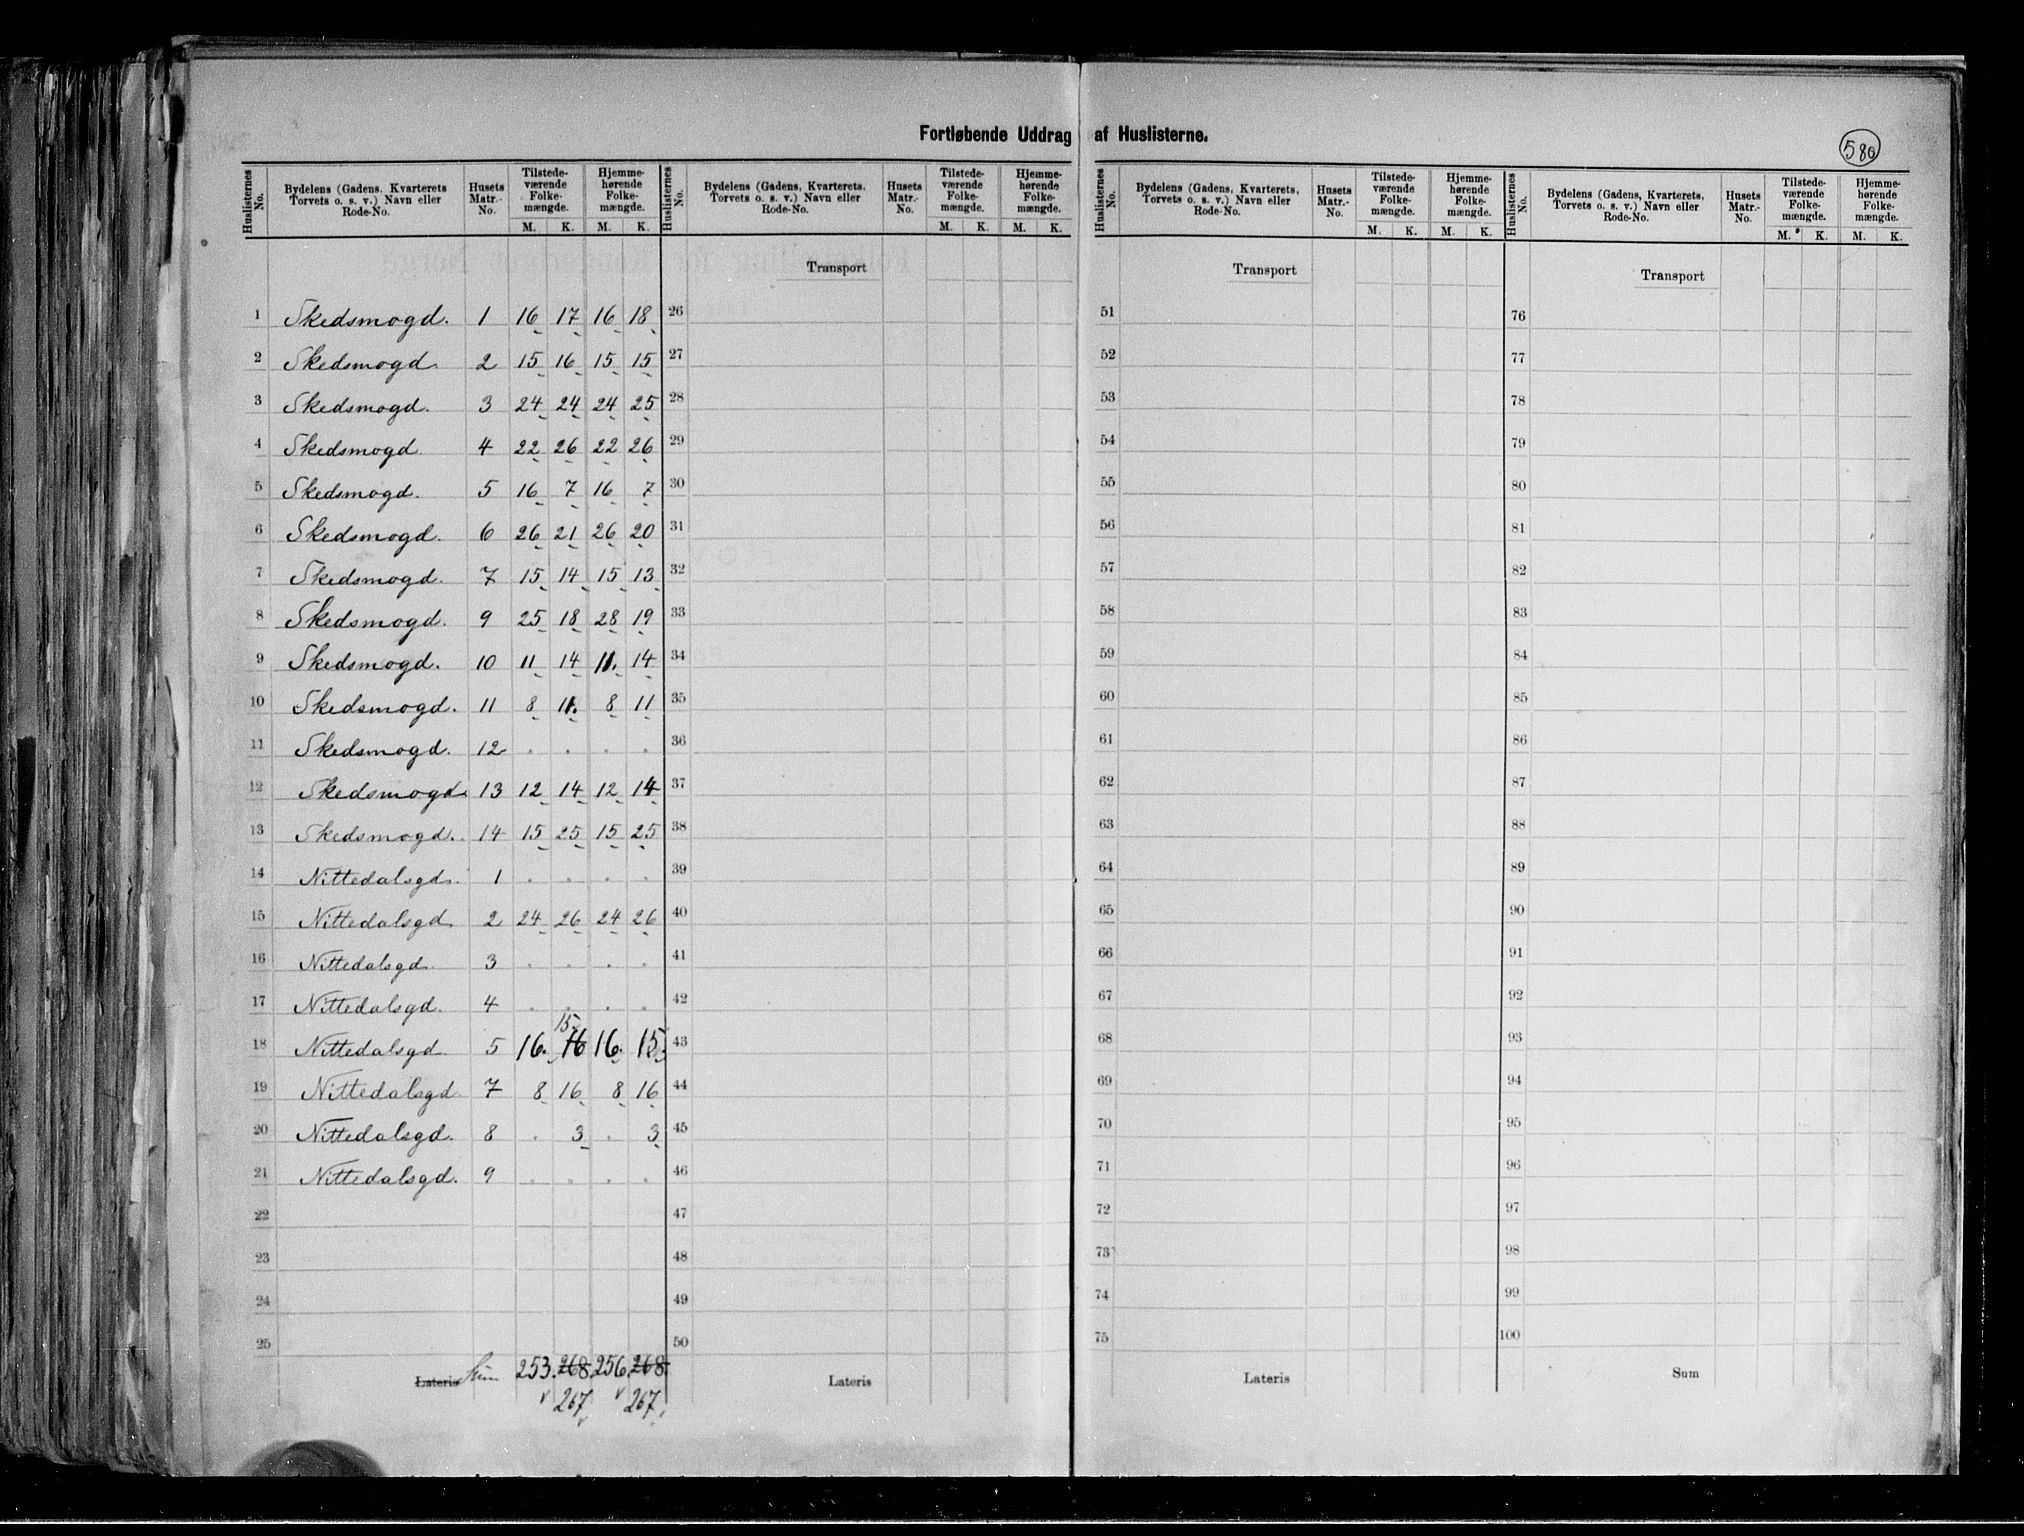 Fortløbende Uddrag af Huslisterne.
580
Huslisternes No. Bydelens (Gadens, Kvarterets Torvets o. s. v.) Navn eller Rode-No. Husets Matr.-No. Tilstede-værende Folke-mængde. M. K. Hjemme-hørende Folke-mængde. M. K.
1 Skedsmogd. 1 16 17 16 18
2 Skedsmogd. 2 15 16 15 15
3 Skedsmogd. 3 24 24 24 25
4 Skedsmogd 4 22 26 22 26
5 Skedsmogd. 5 16 7 16 7
6 Skedsmogd. 6 26 21 26 20
7 Skedsmogd. 7 15 14 15 13
8 Skedsmogd. 9 25 18 28 19
9 Skedsmogd. 10 11 14 11. 14
10 Skedsmogd. 11 8 11. 8 11
11 Skedsmogd. 12 . . . .
12 Skedsmogd. 13 12 14 12 14
13 Skedsmogd. 14 15 25 15 25
14 Nittedalsgd. 1 . . . .
15 Nittedalsgd. 2 24 26 24 26
16 Nittedalsgd. 3 . . . .
17 Nittedalsgd. 4 . . . .
15.
18 Nittedalsgd. 5 16. 16 16. 15.
19 Nittedalsgd. 7 8 16 8 16
20 Nittedalsgd. 8 . 3 . 3
21 Nittedalsgd. 9 . . . .
22
23
24
25
Lateris Sum 253. 268. 256. 268.
267 267
Huslisternes No. Bydelens (Gadens, Kvarterets, Torvets o. s. v.) Navn eller Rode-No. Husets Matr.-No. Tilstede-værende Folke-mængde. M. K. Hjemme-hørende Folke-mængde. M. K.
Transport
26
27
28
29
30
31
32
33
34
35
36
37
38
39
40
41
42
43
44
45
46
47
48
49
50
Lateris
Huslisternes No. Bydelens (Gadens, Kvarterets, Torvets o. s. v.) Navn eller Rode-No. Husets Matr.-No. Tilstede-værende Folke-mængde. M. K. Hjemme-hørende Folke-mængde. M. K.
Transport
51
52
53
54
55
56
57
58
59
60
61
62
63
64
65
66
67
68
69
70
71
72
73
74
75
Lateris
Huslisternes No. Bydelens (Gadens, Kvarterets, Torvets o. s. v.) Navn eller Rode-No. Husets Matr.-No. Tilstede-værende Folke-mængde. M. K. Hjemme-hørende Folke-mængde. M. K.
Transport
76
77
78
79
80
81
82
83
84
85
86
87
88
89
90
91
92
93
94
95
96
97
98
99
100
Sum